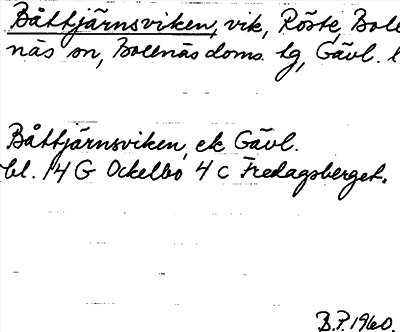 Båttjärnsviken, vik, Röste, Boll
näs sn, Bollnäs doms. tg, Gävl. l
Båttjärnsviken, ek Gävl.
bl. 14 G Ockelbo 4 c Fredagsberget.
B.P. 1960.